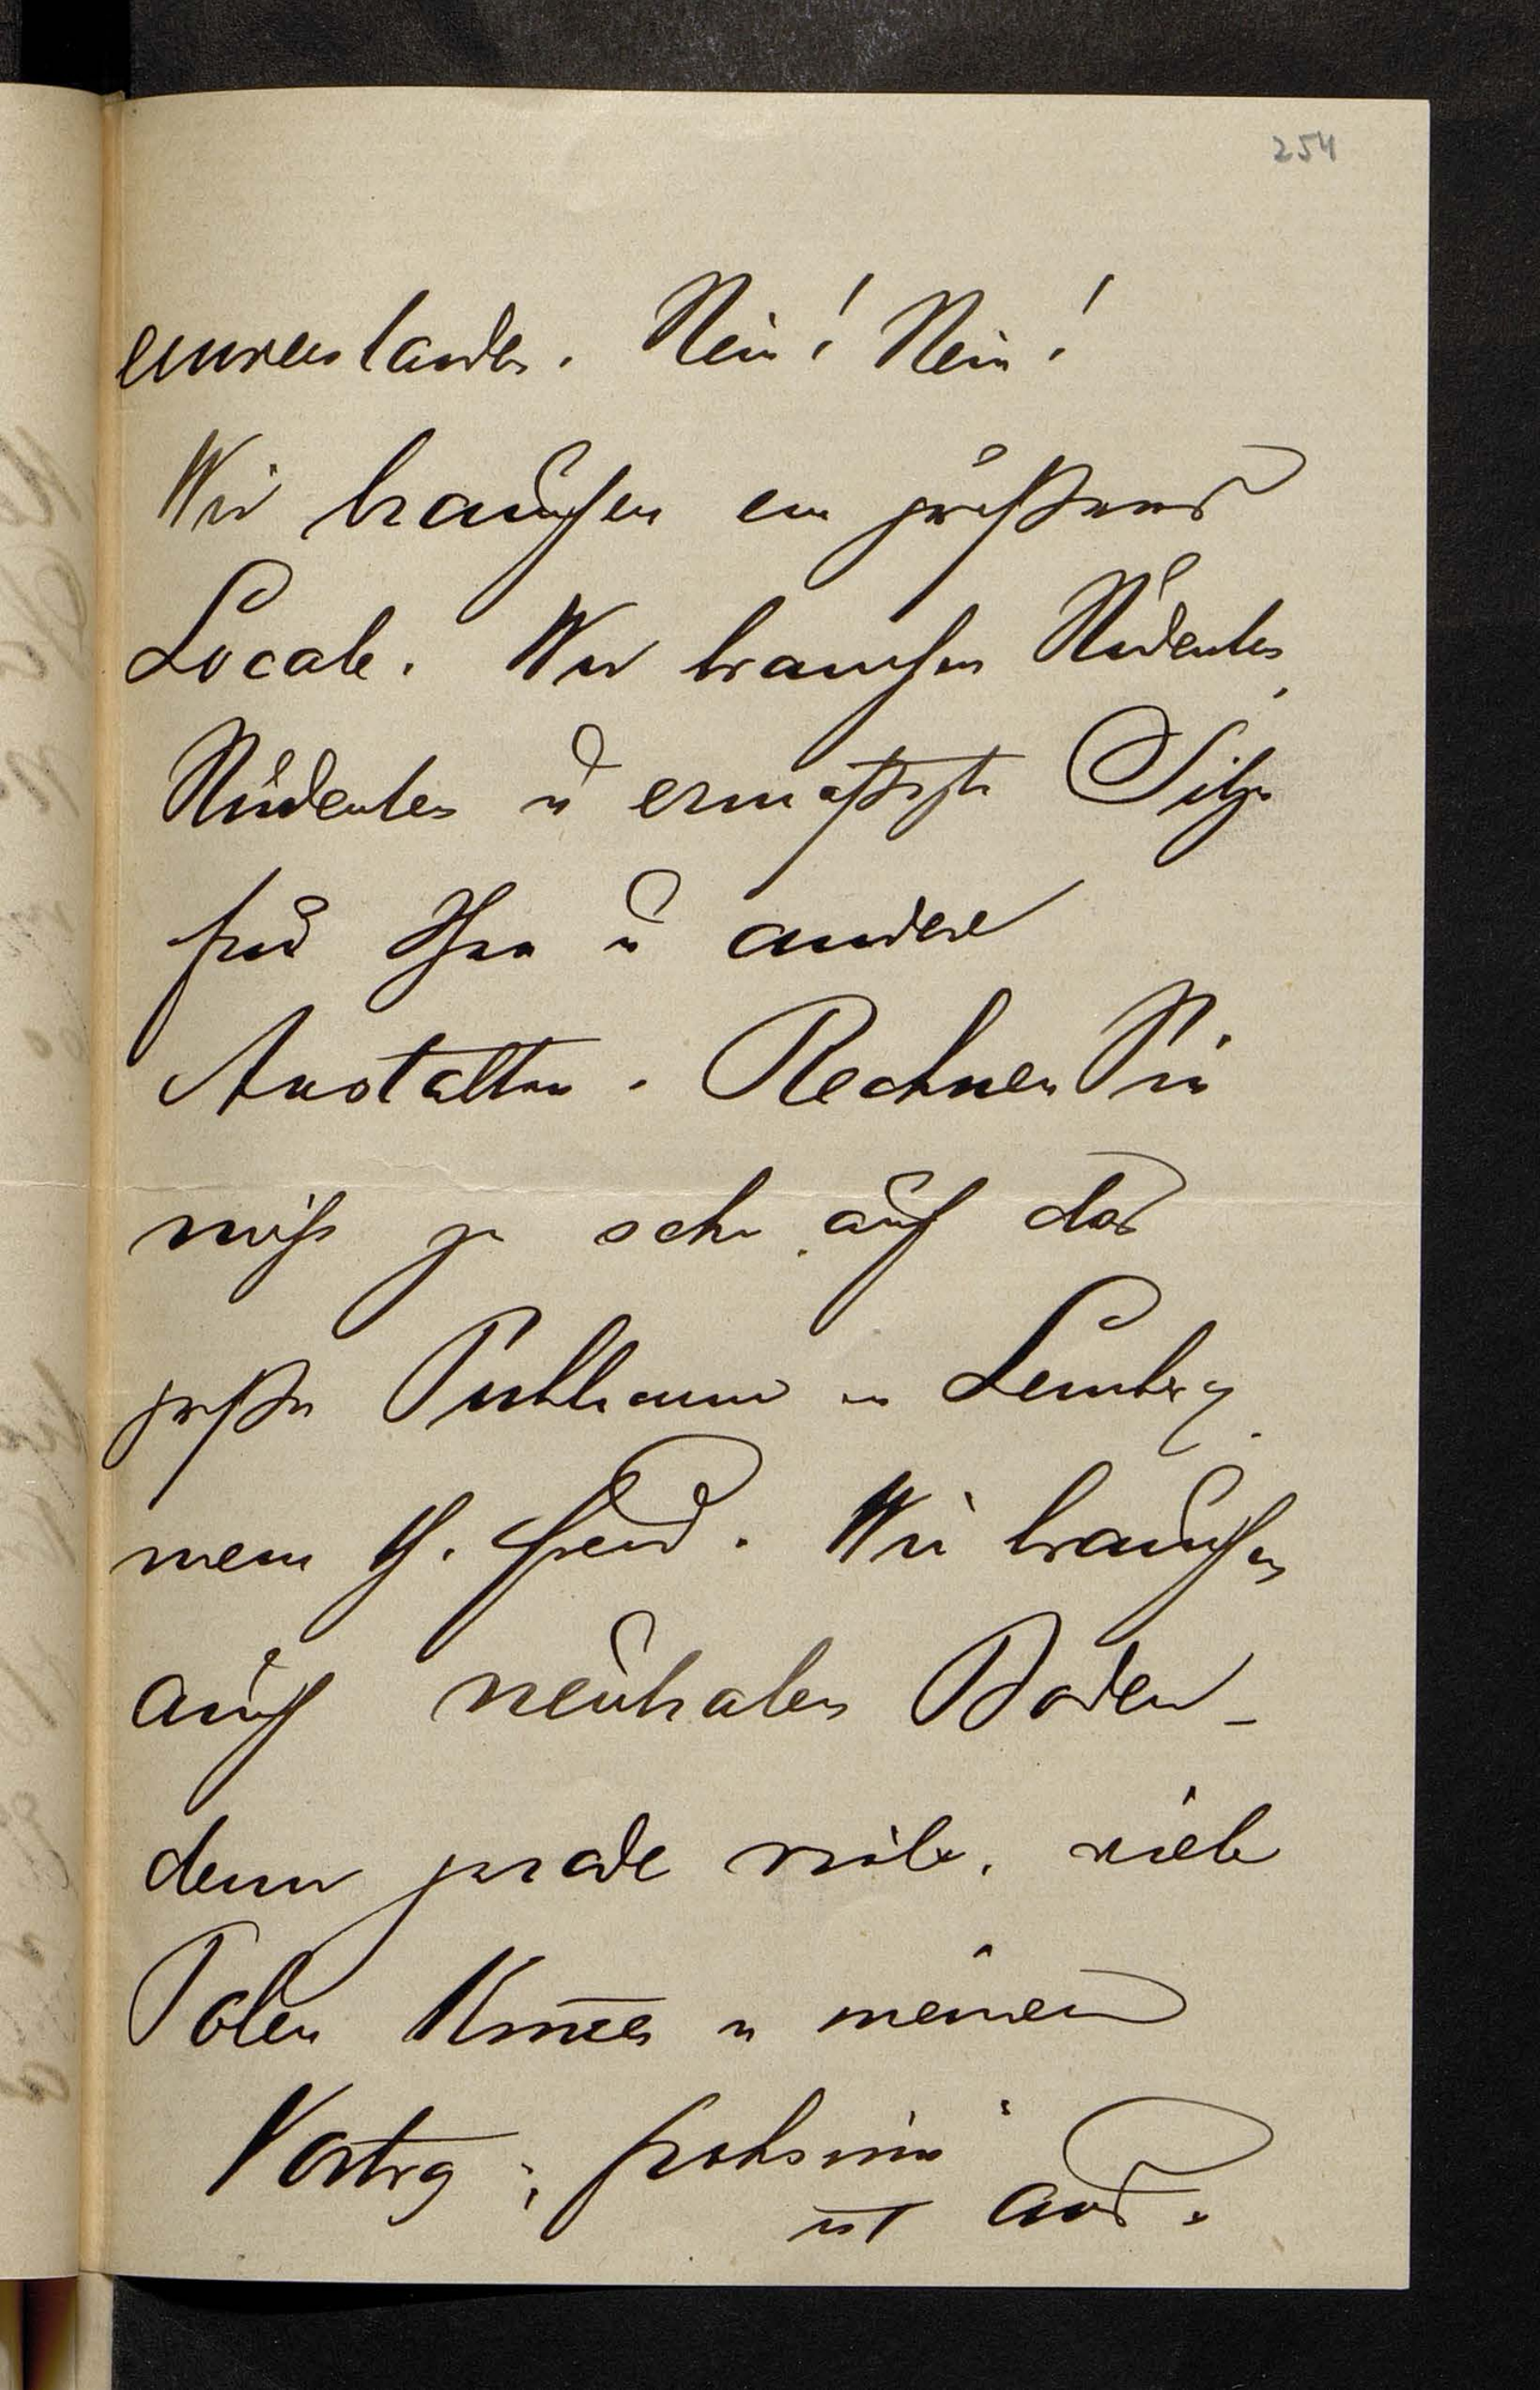 254
einverstanden. Nein! Nein!
Wir brauchen ein größeres
Locale. Wir brauchen Studenten,
Studenten u ermäßigte Sitze
für diese u andere
Anstalten. Rechnen Sie
nicht zu sehr auf das
große Publicum in Lemberg,
mein th. Freund. Wir brauchen
auch neutralen Boden –
denn gerade viele, viele
Polen kom̅en zu meinem
Vortrag;
ist aus.